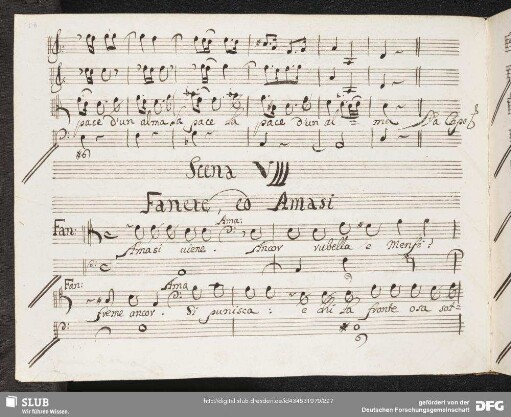 pace d'un alma la pace la pace d'un al - ma Da Capo
86
Scena VIII
Fanete, ed Amasi
Fan: Ama:
Amasi viene. Ancor rubella è Menfi?
Fan: Ama:
freme ancor. Si punisca: e chi la fronte osa sol-
SLUB
Wir führen Wissen.
http://digital.slub-dresden.de/id434931979/227
gefördert von der
Deutschen Forschungsgemeinschaft
DFG